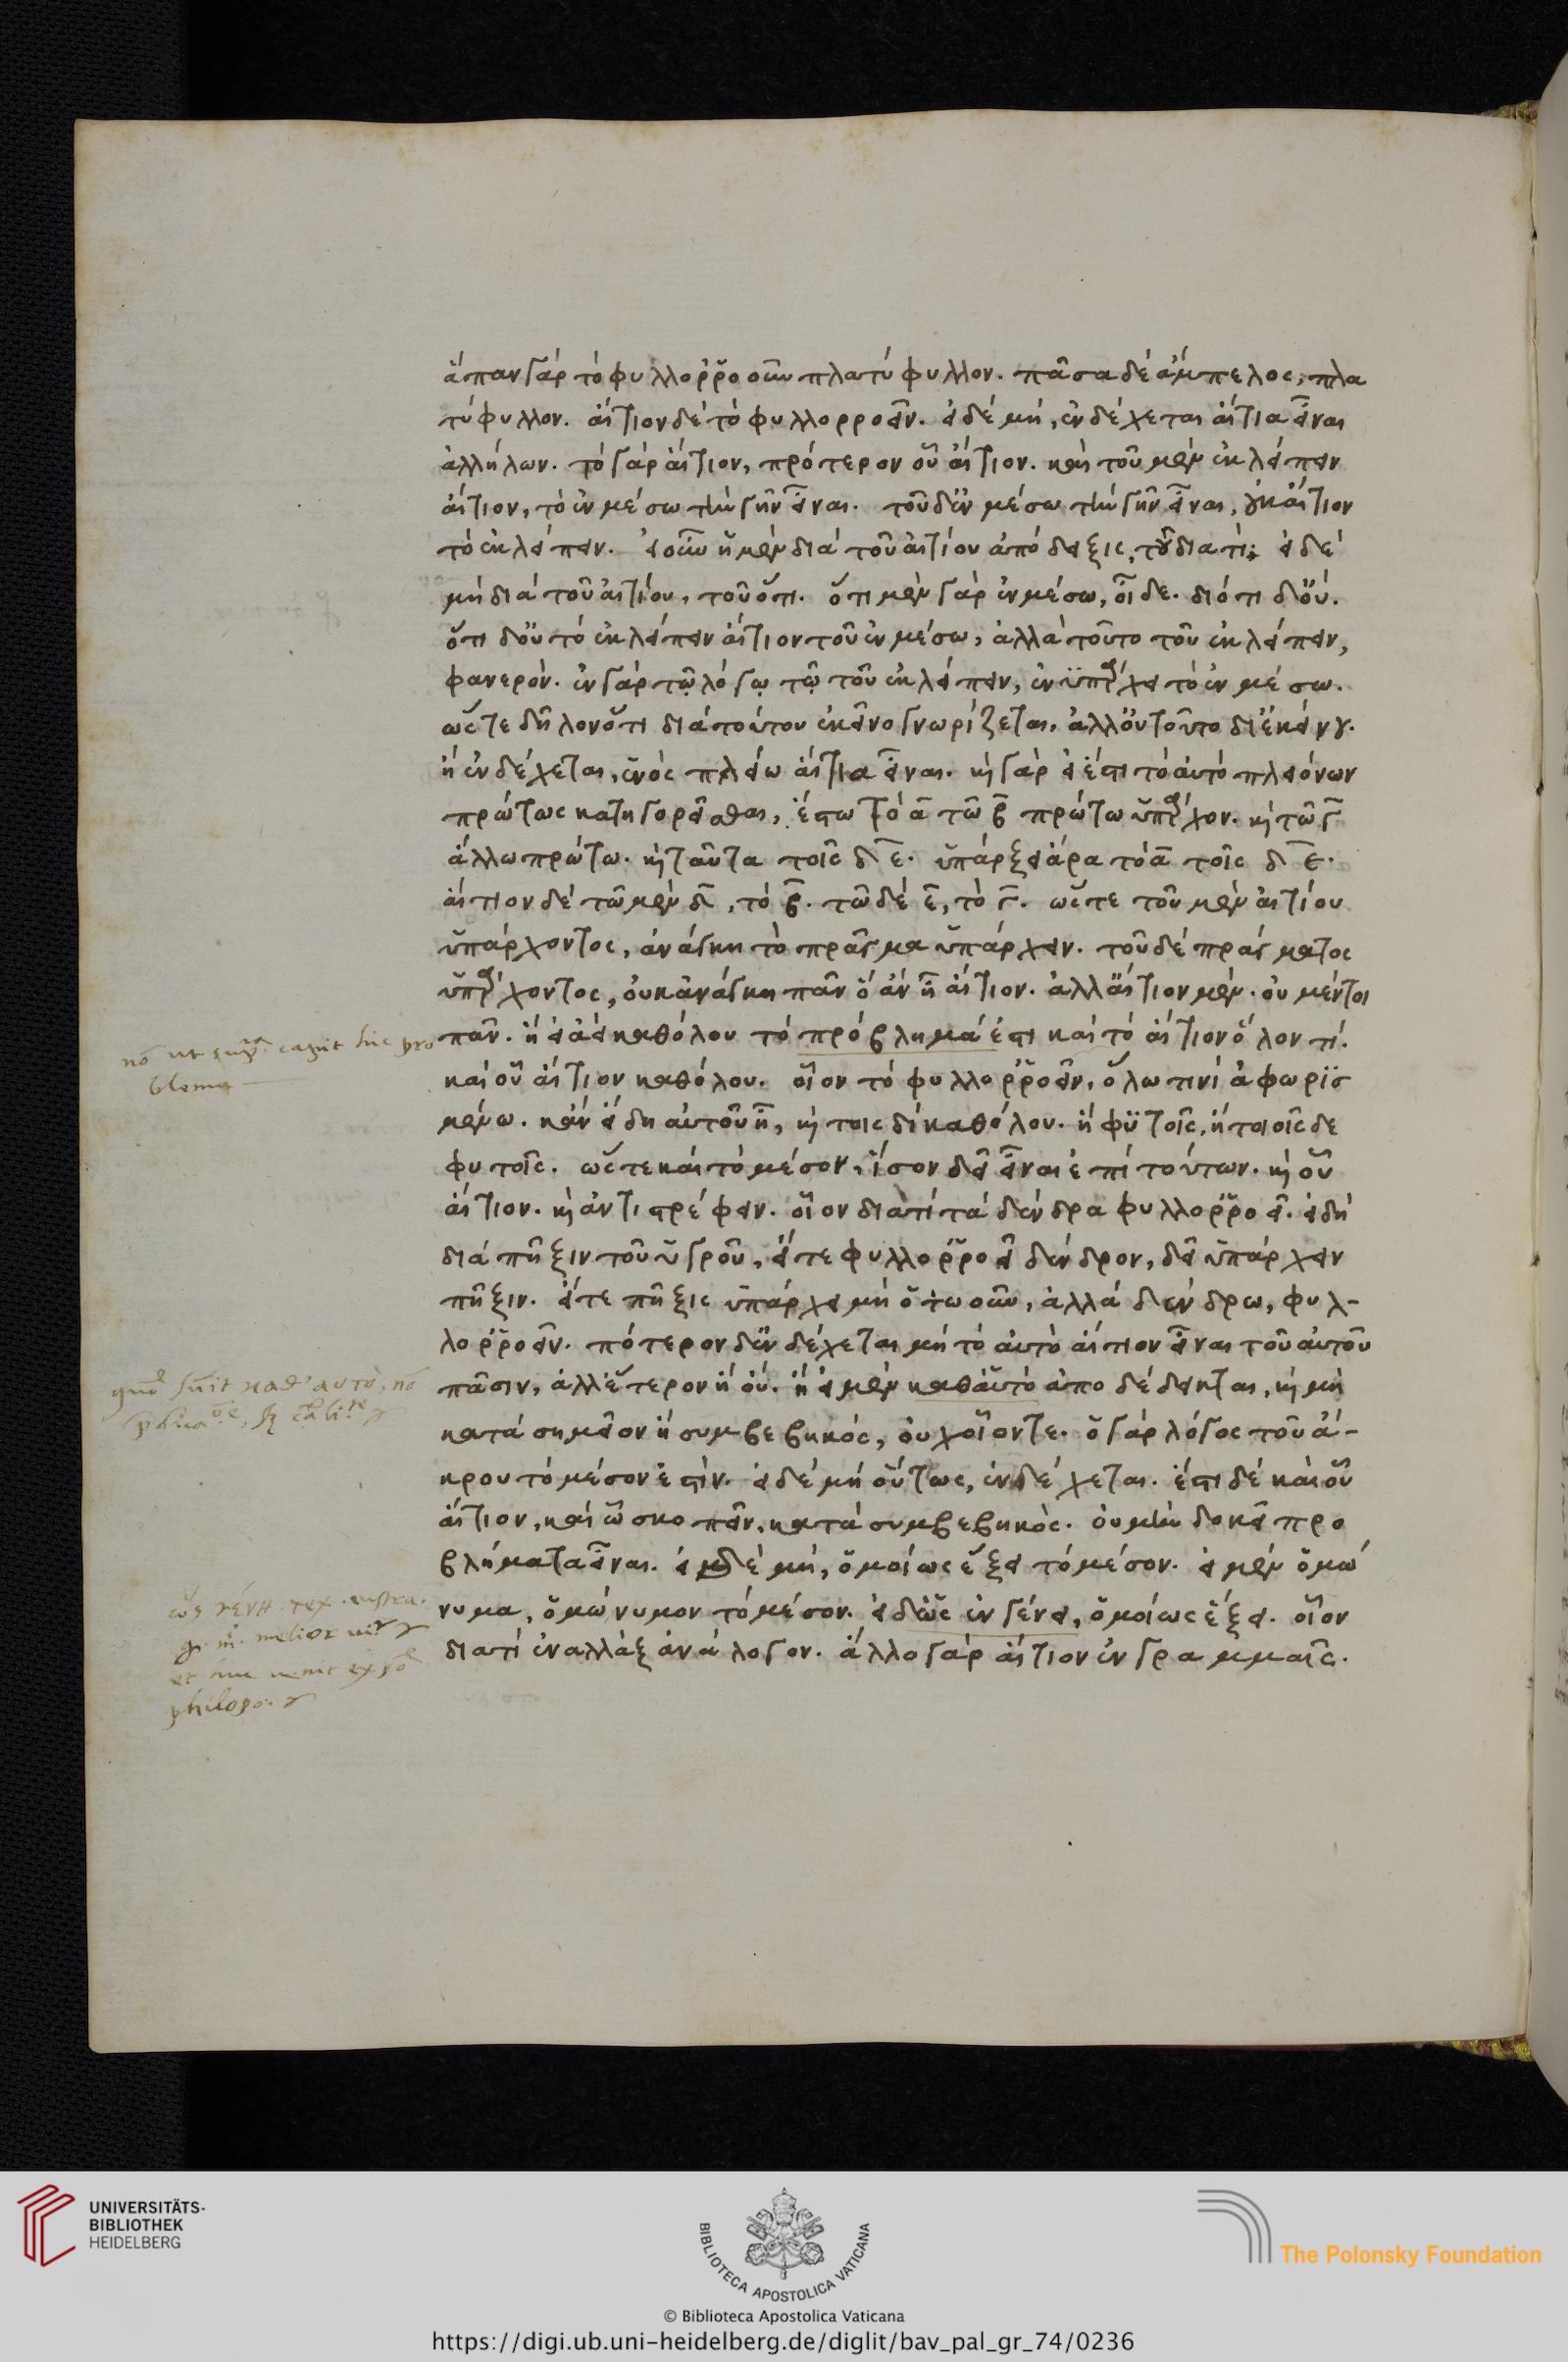 ἅπαν γὰρ τὸ φυλλορροοῦν πλατύφυλλον. πᾶσα δὲ ἄμπελος, πλα
τύφυλλον. αἴτιον δὲ τὸ φυλλορροεῖν. εἰ δὲ μή, ἐνδέχεται αἴτια εἶναι
ἀλλήλων. τὸ γὰρ αἴτιον, πρότερον οὗ αἴτιον. καὶ τοῦ μὲν ἐκλείπειν
αἴτιον, τὸ ἐν μέσω τὴν γῆν εἶναι. τοῦ δ' ἐν μέσω τὴν γῆν εἶναι, οὐκ αἴτιον
τὸ ἐκλείπειν. εἰ οὖν ἡ μὲν διὰ τοῦ αἰτίου ἀπόδειξις, τοῦ διὰ τί; ἡ δὲ
μὴ διὰ τοῦ αἰτίου, τοῦ ὅτι. ὅτι μὲν γὰρ ἐν μέσω, οἶδε. διότι δ' οὔ.
ὅτι δ' οὐ τὸ ἐκλείπειν αἴτιον τοῦ ἐν μέσω, ἀλλὰ τοῦτο τοῦ ἐκλείπειν,
φανερόν. ἐν γὰρ τῷ λόγῳ τῷ τοῦ ἐκλείπειν, ἐνϋπάρχει τὸ ἐν μέσω.
ὥστε δῆλον ὅτι διὰ τούτου ἐκεῖνο γνωρίζεται, ἀλλ' οὐ τοῦτο δι' ἐκείνου.
ἢ ἐνδέχεται, ἑνὸς πλείω αἴτια εἶναι. καὶ γὰρ εἰ ἔστι τὸ αὐτὸ πλειόνων
πρώτως κατηγορεῖσθαι, ἔστω τὸ α τῶ β πρώτω ὑπάρχον. καὶ τῶ γ
ἄλλω πρώτω. καὶ ταῦτα τοῖς δ ε. ὑπάρξει ἄρα τὸ α τοῖς δ ε.
αἴτιον δὲ τῶ μὲν δ, τὸ β. τῶ δὲ ε, τὸ γ. ὥστε τοῦ μὲν αἰτίου
ὑπάρχοντος, ἀνάγκη τὸ πρᾶγμα ὑπάρχειν. τοῦ δὲ πράγματος
ὑπάρχοντος, οὐκ ἀνάγκη πᾶν ὃ ἂν ᾖ αἴτιον. ἀλλ' αἴτιον μέν. οὐ μέντοι
πᾶν. ἢ εἰ ἀεὶ καθόλου τὸ πρόβλημά ἐστι καὶ τὸ αἴτιον ὅλον τί.
καὶ οὗ αἴτιον καθόλου. οἷον τὸ φυλλορροεῖν, ὅλω τινὶ ἀφωρισ
μένω. κἂν εἴδη αὐτοῦ ᾖ, καὶ τοισδὶ καθόλου. ἢ φυτοῖς, ἢ τοιοῖσδε
φυτοῖς. ὥστε καὶ τὸ μέσον, ἴσον δεῖ εἶναι ἐπὶ τούτων. καὶ οὗ
αἴτιον. καὶ ἀντιστρέφειν. οἷον διατί τὰ δένδρα φυλλορροεῖ. εἰ δὴ
διὰ πῆξιν τοῦ ὑγροῦ, εἴτε φυλλορροεῖ δένδρον, δεῖ ὑπάρχειν
πῆξιν. εἴτε πῆξις ὑπάρχει μὴ ὁτωοῦν, ἀλλὰ δένδρω, φυλ-
λορροεῖν. πότερον δ' ἐνδέχεται μὴ τὸ αὐτὸ αἴτιον εἶναι τοῦ αὐτοῦ
πᾶσιν, ἀλλ' ἕτερον ἢ οὔ. ἢ εἰ μὲν καθ' αὑτὸ ἀποδέδεικται, καὶ μὴ
κατὰ σημεῖον ἢ συμβεβηκός, οὐχ οἷόν τε. ὁ γὰρ λόγος τοῦ ἄ-
κρου τὸ μέσον ἐστίν. εἰ δὲ μὴ οὕτως, ἐνδέχεται. ἔστι δὲ καὶ οὗ
αἴτιον, καὶ ὧ σκοπεῖν, κατὰ συμβεβηκός. οὐ μὴν δοκεῖ προ
βλήματα εἶναι. εἰ δὲ μή, ὁμοίως ἕξει τὸ μέσον. εἰ μὲν ὁμώ
νυμα, ὁμώνυμον τὸ μέσον. εἰ δ' ὡς ἐν γένει, ὁμοίως ἕξει. οἷον
διατί ἐναλλὰξ ἀνάλογον. ἄλλο γὰρ αἴτιον ἐν γραμμαῖς.
hic pro
blema
καθ' αὑτὸ, nō
philopo.
UNIVERSITÄTS-
BIBLIOTHEK
HEIDELBERG
BIBLIOTECA APOSTOLICA VATICANA
The Polonsky Foundation
© Biblioteca Apostolica Vaticana
https://digi.ub.uni-heidelberg.de/diglit/bav_pal_gr_74/0236